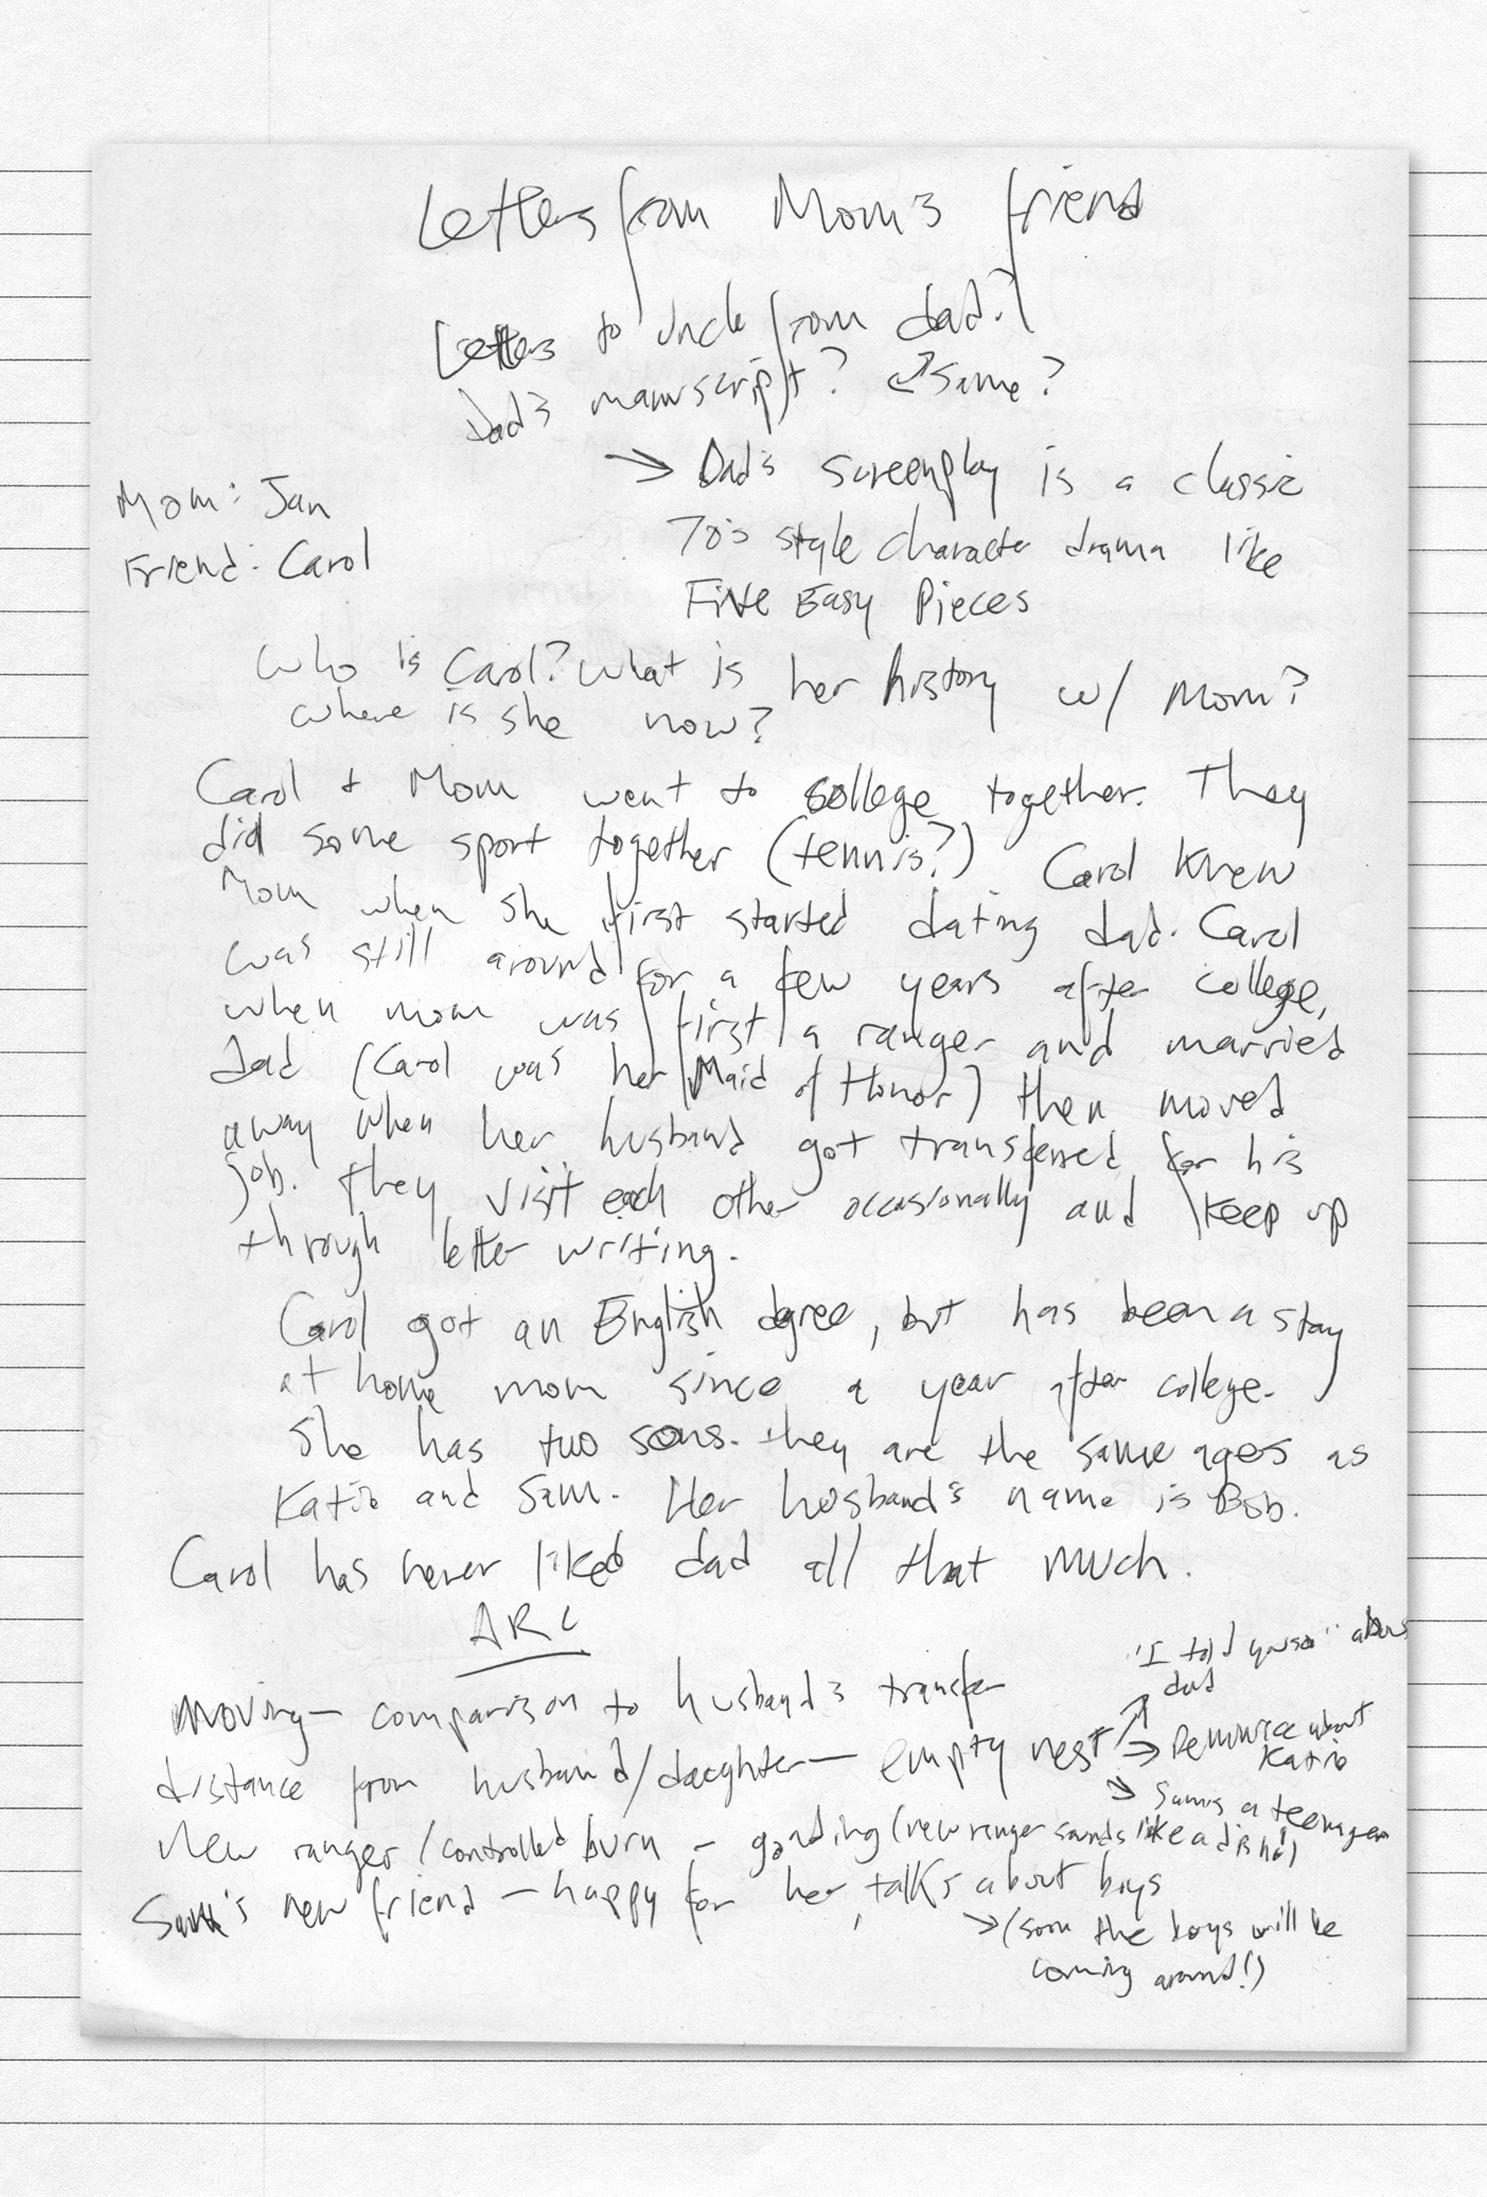 Letters from Mom's friend
Letters to Uncle from dad?
Dad's manuscript? Same?
→ Dad's screenplay is a classic
70's style character drama like
Five Easy Pieces
Mom: Jan
Friend: Carol
Who is Carol? What is her history w/ Mom?
Where is she now?
Carol + Mom went to college together. They
did some sport together (tennis?) Carol knew
Mom when she first started dating dad. Carol
was still around for a few years after college,
when mom was first a ranger and married
dad (Carol was her Maid of Honor) then moved
away when her husband got transferred for his
job. They visit each other occasionally and keep up
through letter writing.
Carol got an English dgree, but has been a stay
at home mom since a year after college.
She has two sons. they are the same ages as
Katie and Sam. Her husband's name is Bob.
Carol has never liked dad all that much.
ARC
Moving - comparison to husband's transfer
distance from husband/daughter - empty nest
↗ "I told you so" about
dad
→ Reminice about
Katie
↘ Sam's a teenager
New ranger/controlled burn - goading (new ranger sounds like a dish!)
Sam's new friend - happy for her, talks about boys
→ (soon the boys will be
coming around!)